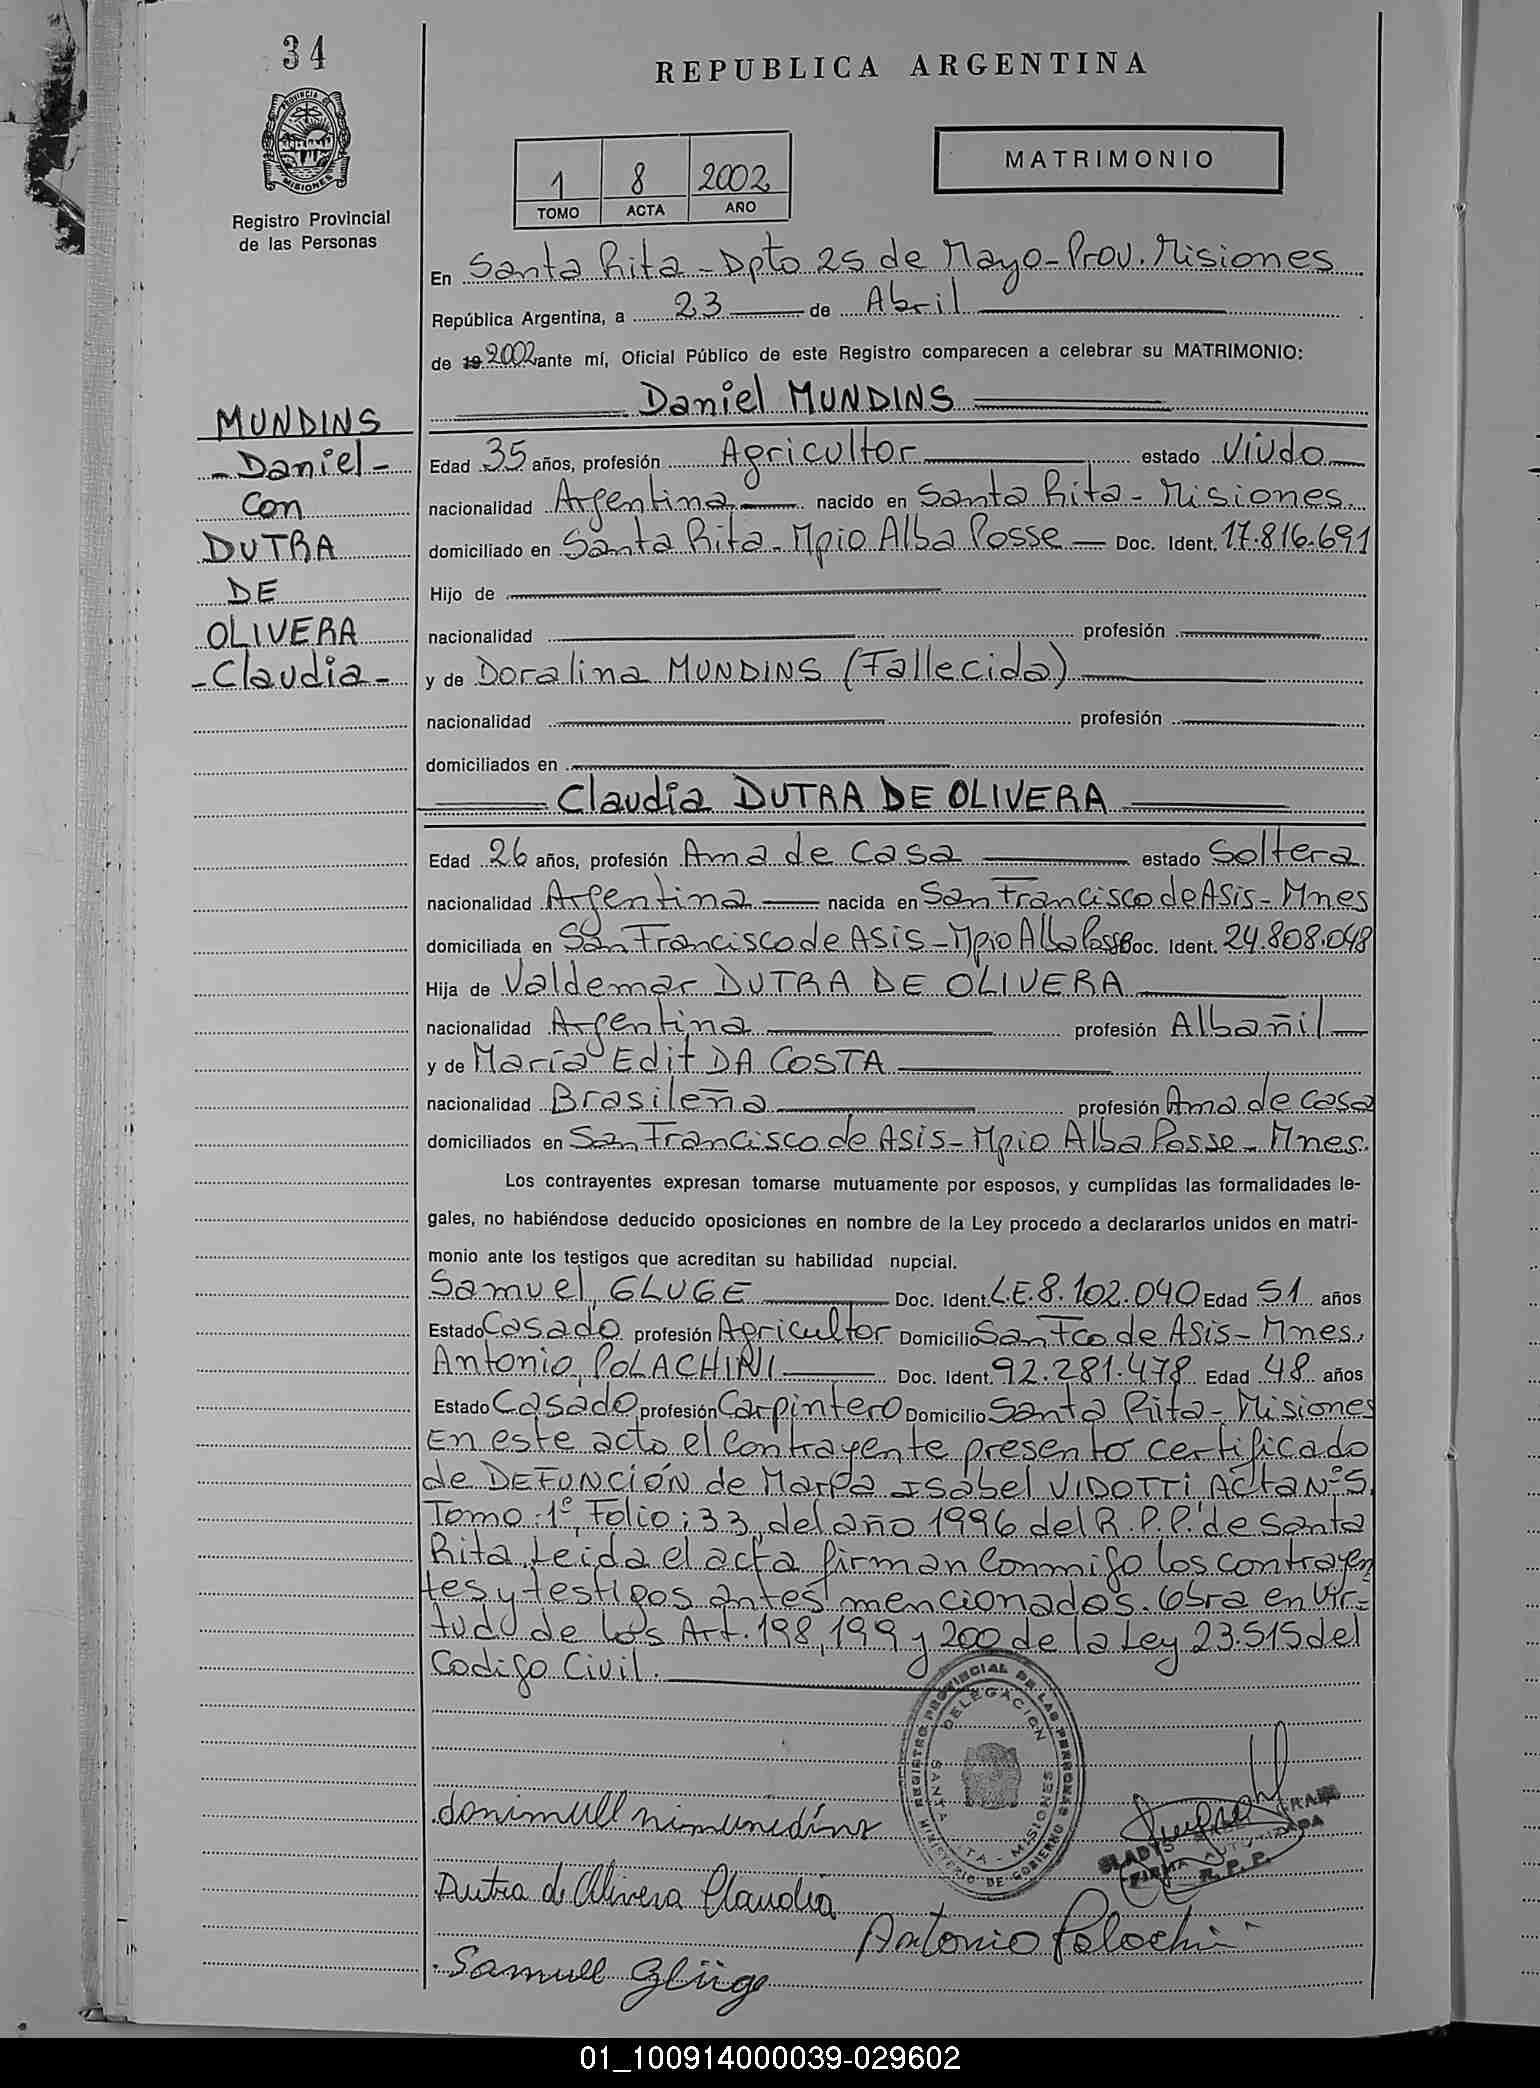 34
REPUBLICA ARGENTINA
PROVINCIA DE
MISIONES
Registro Provincial
de las Personas
1 8 2002
TOMO ACTA AÑO
MATRIMONIO
En Santa Rita - Dpto 25 de Mayo - Prov. Misiones
República Argentina, a 23 de Abril
de 19 2002 ante mí, Oficial Público de este Registro comparecen a celebrar su MATRIMONIO:
Daniel MUNDINS
MUNDINS
- Daniel -
Con
DUTRA
DE
OLIVERA
- Claudia -
Edad 35 años, profesión Agricultor estado Viudo
nacionalidad Argentina nacido en Santa Rita - Misiones
domiciliado en Santa Rita - Mpio Alba Posse Doc. Ident. 17.816.691
Hijo de
nacionalidad profesión
y de Doralina MUNDINS (Fallecida)
nacionalidad profesión
domiciliados en
Claudia DUTRA DE OLIVERA
Edad 26 años, profesión Ama de Casa estado Soltera
nacionalidad Argentina nacida en San Francisco de Asis - Mnes
domiciliada en San Francisco de Asis - Mpio Alba Posse Doc. Ident. 24.808.048
Hija de Valdemar DUTRA DE OLIVERA
nacionalidad Argentina profesión Albañil
y de María Edit DA COSTA
nacionalidad Brasileña profesión Ama de casa
domiciliados en San Francisco de Asis - Mpio Alba Posse - Mnes.
Los contrayentes expresan tomarse mutuamente por esposos, y cumplidas las formalidades le-
gales, no habiéndose deducido oposiciones en nombre de la Ley procedo a declararlos unidos en matri-
monio ante los testigos que acreditan su habilidad nupcial.
Samuel GLUGE Doc. Ident. L.E. 8.102.040 Edad 51 años
Estado Casado profesión Agricultor Domicilio San Fco de Asis - Mnes.
Antonio POLACHINI Doc. Ident. 92.281.478 Edad 48 años
Estado Casado profesión Carpintero Domicilio Santa Rita - Misiones
En este acto el Contrayente presento certificado
de DEFUNCIÓN de María Isabel VIDOTTI Acta Nº 5
Tomo: 1º, Folio: 33, del año 1996 del R.P.P. de Santa
Rita. Leida el acta firman Conmigo los contrayen
tes y testigos antes mencionados. Obra en Vir-
tud de los Art. 198, 199 y 200 de la Ley 23.515 del
Codigo Civil.
REGISTRO PROVINCIAL DE LAS PERSONAS
MINISTERIO DE GOBIERNO
DELEGACION
SANTA RITA - MISIONES
GLADYS
FIRMA AUTORIZADA
R. P. P.
Dutra de Olivera Claudia
Antonio Polachini
Samuell Glüge
01_100914000039-029602